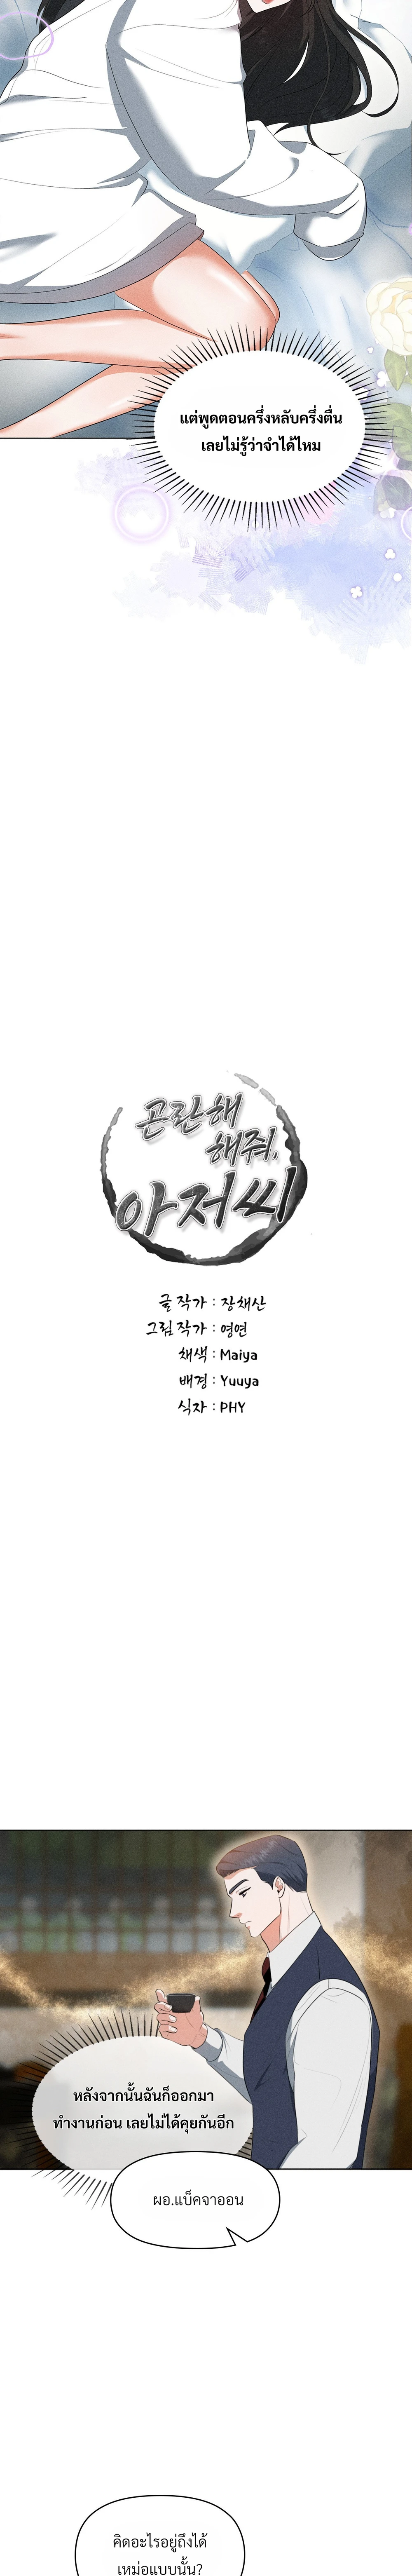 แต่พูดตอนครึ่งหลับครึ่งตื่น
เลยไม่รู้ว่าจำได้ไหม
곤란해
해줘,
아저씨
글 작가 : 장채산
그림 작가 : 영연
채색 : Maiya
배경 : Yuuya
식자 : PHY
หลังจากนั้นฉันก็ออกมา
ทำงานก่อน เลยไม่ได้คุยกันอีก
ผอ.แบ็คจาออน
คิดอะไรอยู่ถึงได้
เหม่อแบบนั้น?